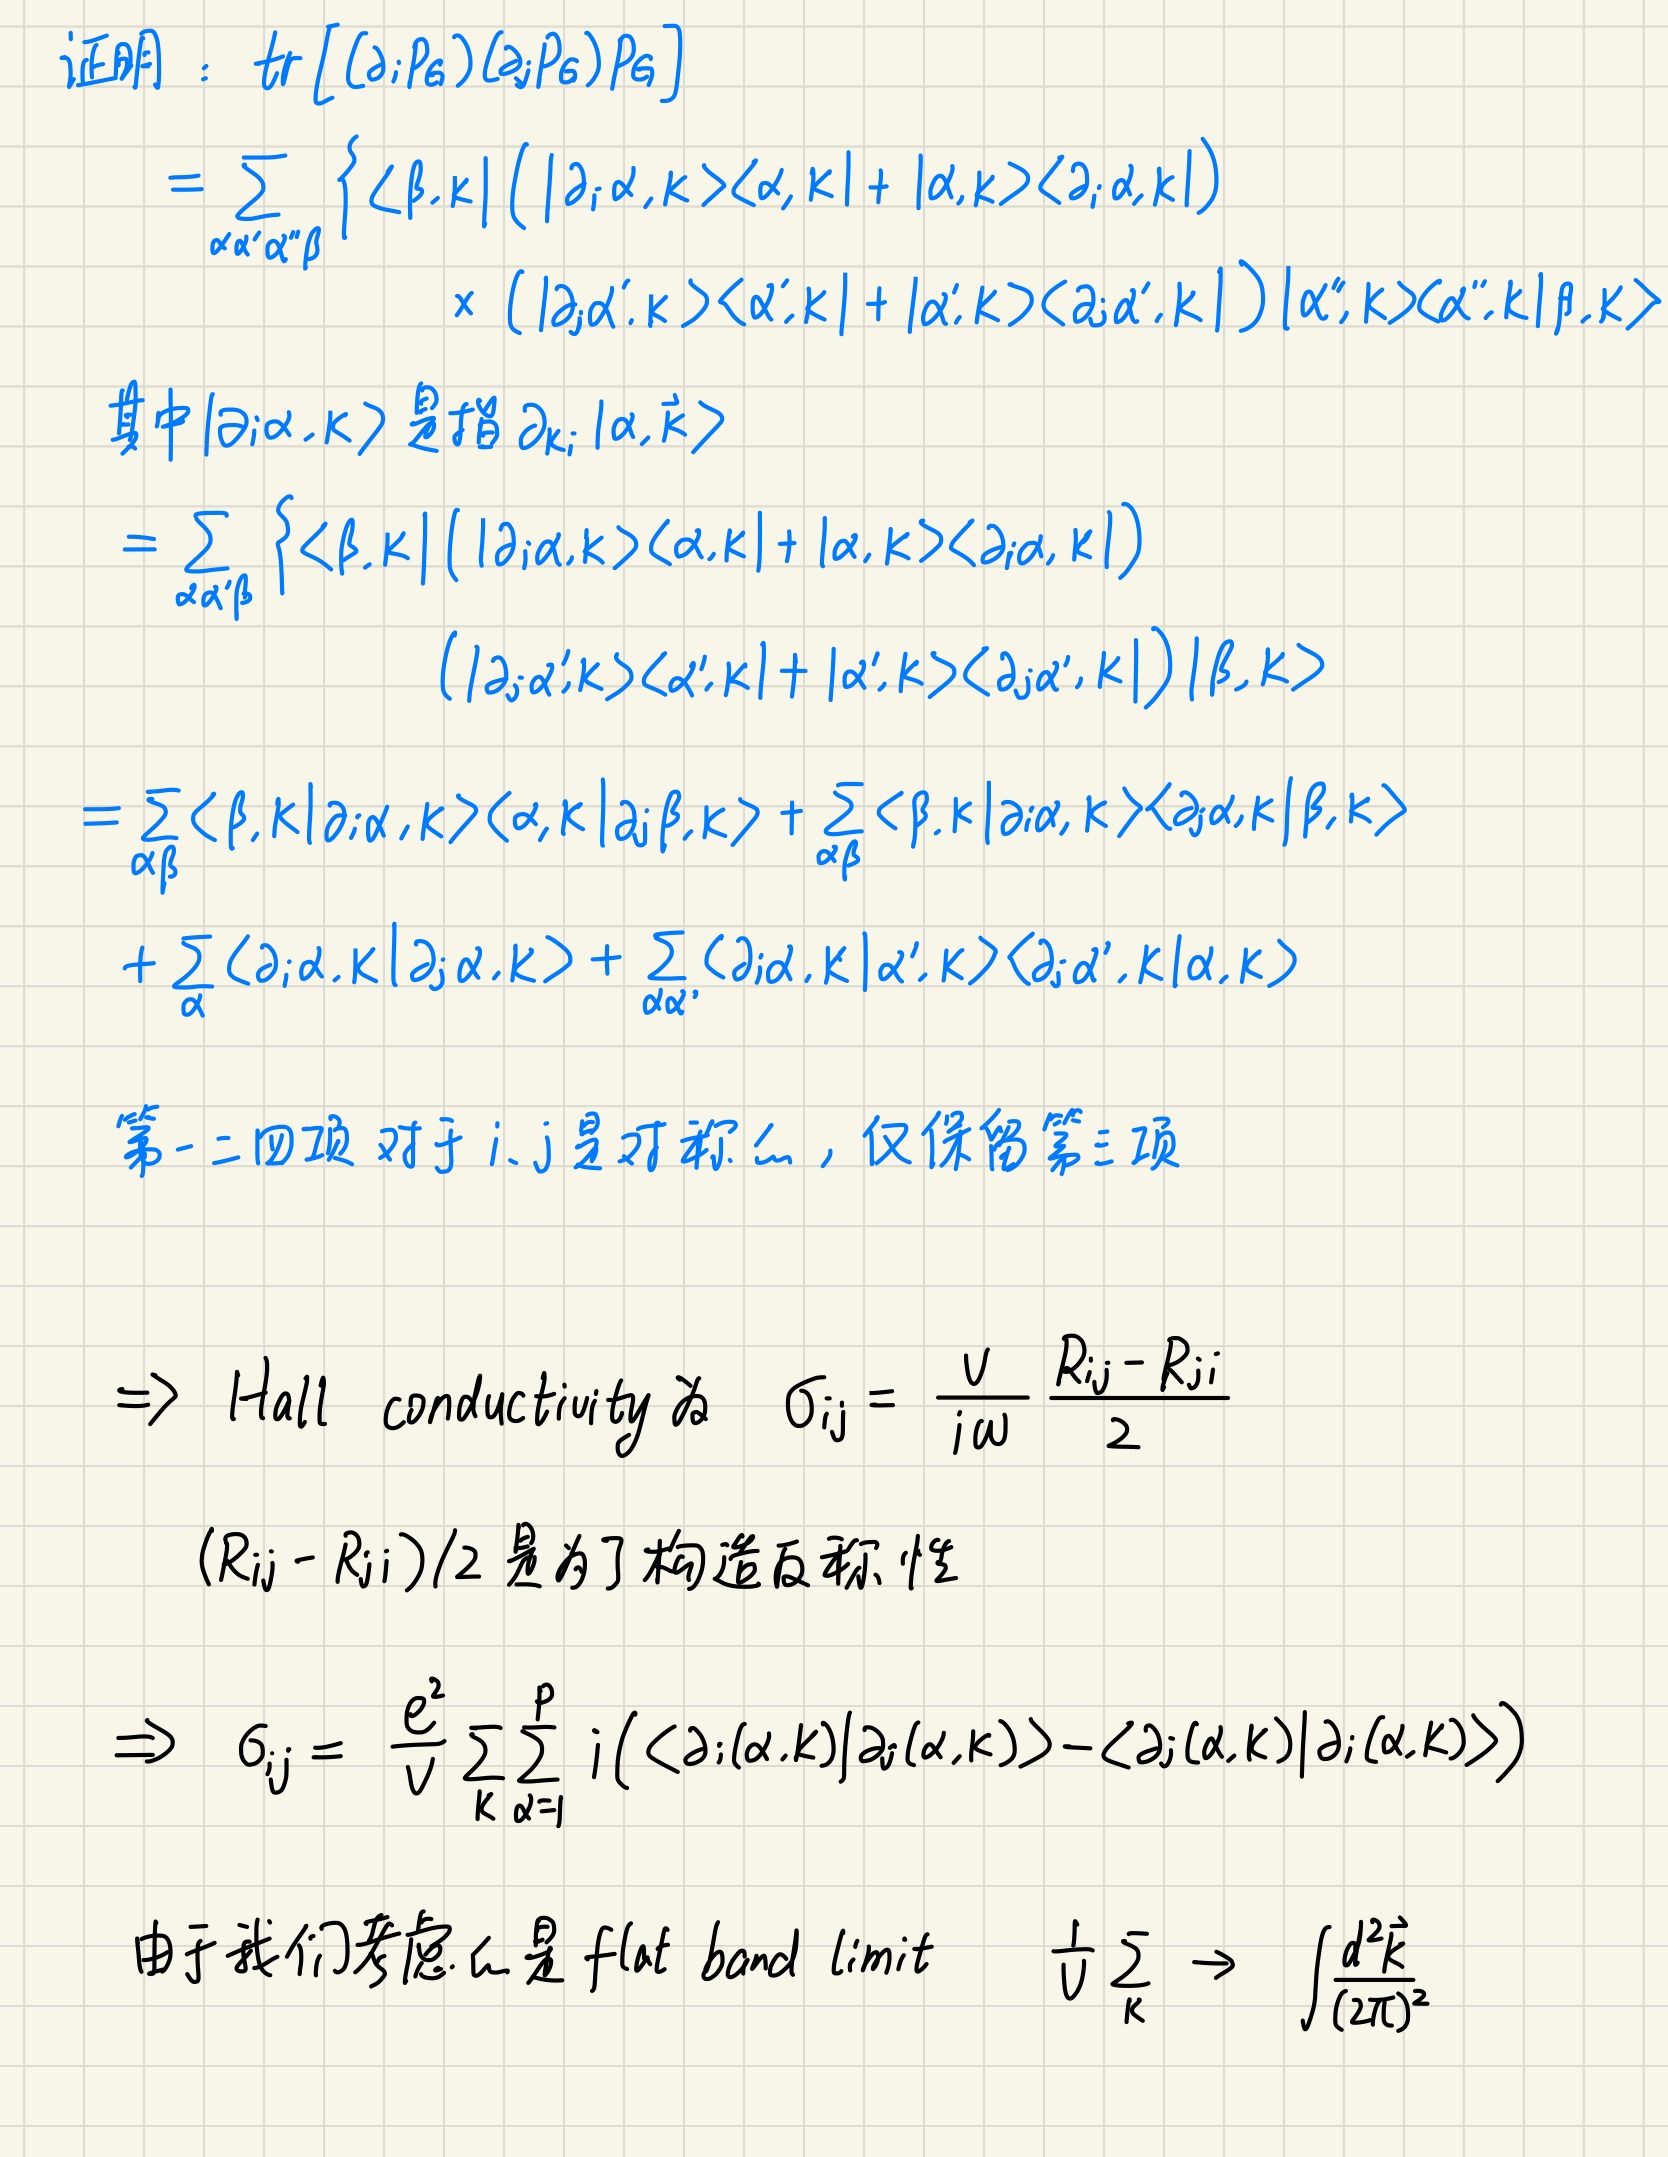 证明：tr[(∂ᵢP_G)(∂ⱼP_G)P_G]
= Σ_{αα′α″β} {<β,k|(|∂ᵢα,k><α,k| + |α,k><∂ᵢα,k|)
× (|∂ⱼα′,k><α′,k| + |α′,k><∂ⱼα′,k|)|α″,k><α″,k|β,k>
其中|∂ᵢα,k> 是指 ∂_{kᵢ}|α,k⃗>
= Σ_{αα′β} {<β,k|(|∂ᵢα,k><α,k| + |α,k><∂ᵢα,k|)
(|∂ⱼα′,k><α′,k| + |α′,k><∂ⱼα′,k|)|β,k>
= Σ_{αβ} <β,k|∂ᵢα,k><α,k|∂ⱼβ,k> + Σ_{αβ} <β,k|∂ᵢα,k><∂ⱼα,k|β,k>
+ Σ_α <∂ᵢα,k|∂ⱼα,k> + Σ_{αα′} <∂ᵢα,k|α′,k><∂ⱼα′,k|α,k>
第一二四项对于i、j是对称的，仅保留第三项
⇒ Hall conductivity为 σᵢⱼ = \frac{V}{iω} \frac{Rᵢⱼ - Rⱼᵢ}{2}
(Rᵢⱼ - Rⱼᵢ)/2 是为了构造反称性
⇒ σᵢⱼ = \frac{e²}{V} Σ_k Σ_{α=1}^{P} i(<∂ᵢ(α,k)|∂ⱼ(α,k)> - <∂ⱼ(α,k)|∂ᵢ(α,k)>)
由于我们考虑的是flat band limit \frac{1}{V} Σ_k → ∫\frac{d²k⃗}{(2π)²}